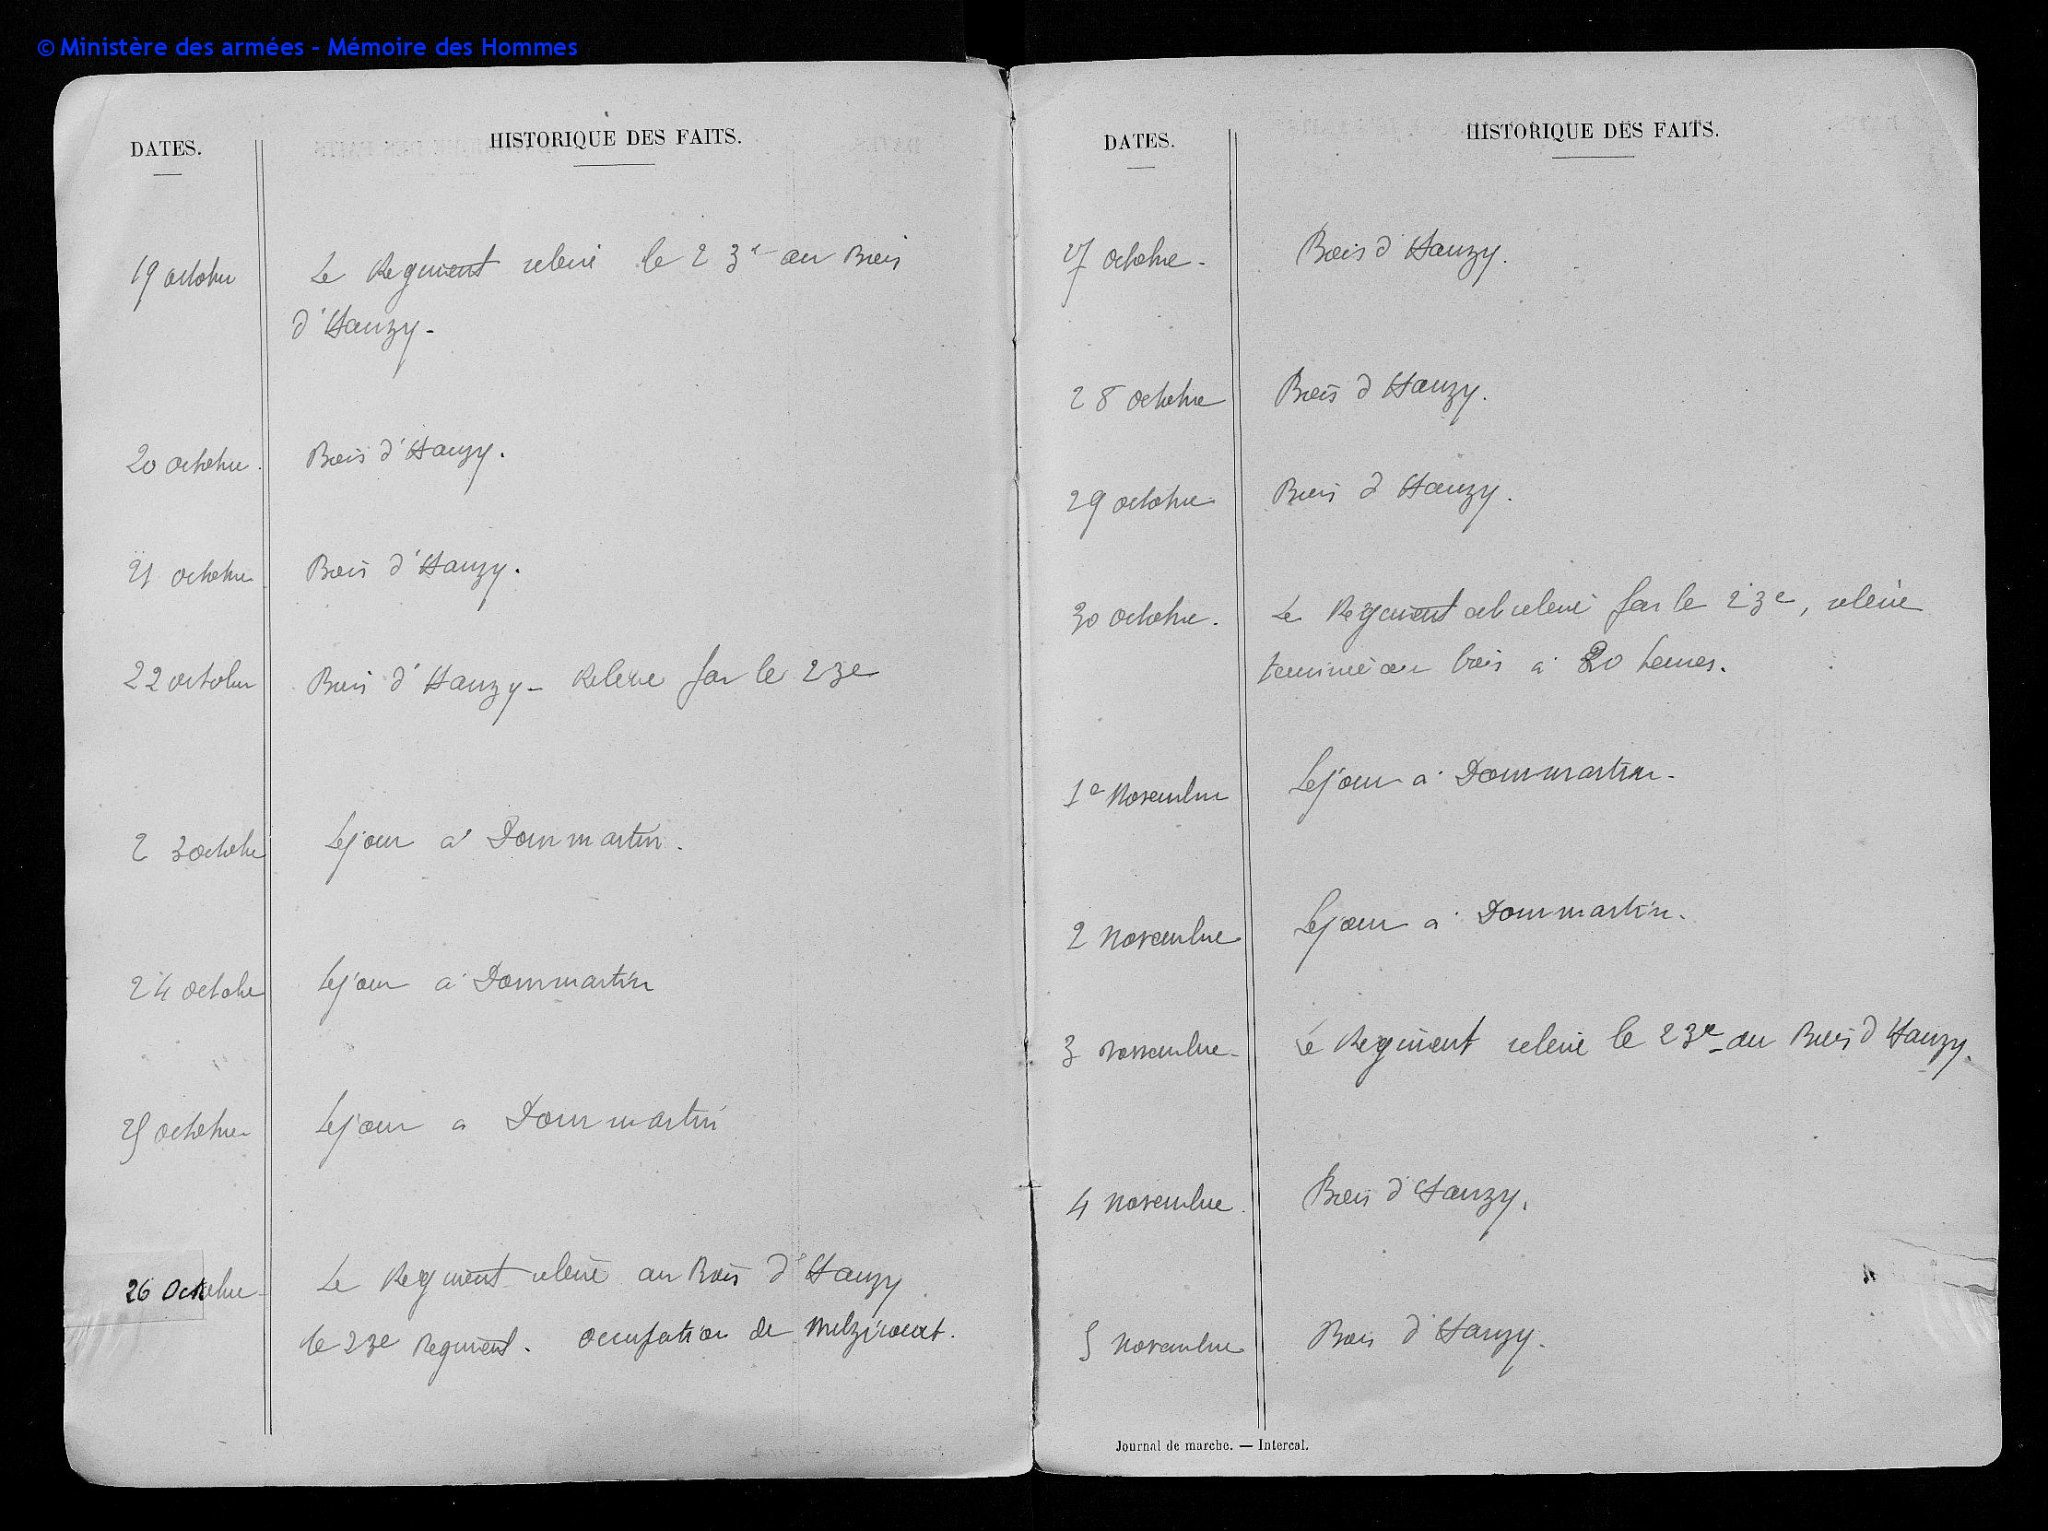 © Ministère des armées - Mémoire des Hommes
DATES.
HISTORIQUE DES FAITS.
19 octobre
Le Regiment relève le 23e au Bois
d'Hauzy.
20 octobre.
Bois d'Hauzy.
21 octobre
Bois d'Hauzy.
22 octobre
Bois d'Hauzy - Relève par le 23e
23 octobre
Séjour à Dommartin.
24 octobre
Séjour à Dommartin
25 octobre
Séjour a Dommartin
26 Octobre
Le Regiment relève au Bois d'Hauzy
le 23e Regiment. Occupation de Melzicourt.
DATES.
HISTORIQUE DES FAITS.
27 octobre.
Bois d'Hauzy.
28 octobre
Bois d Hauzy.
29 octobre
Bois d Hauzy.
30 octobre.
Le Régiment est relevé par le 23e, relève
terminée au bois à 20 heures.
1e Novembre
Séjour à Dommartin.
2 Novembre
Séjour à Dommartin.
3 novembre
Le Regiment relève le 23e au Bois d Hauzy.
4 novembre.
Bois d'Hauzy.
5 novembre
Bois d'Hauzy.
Journal de marche. — Intercal.